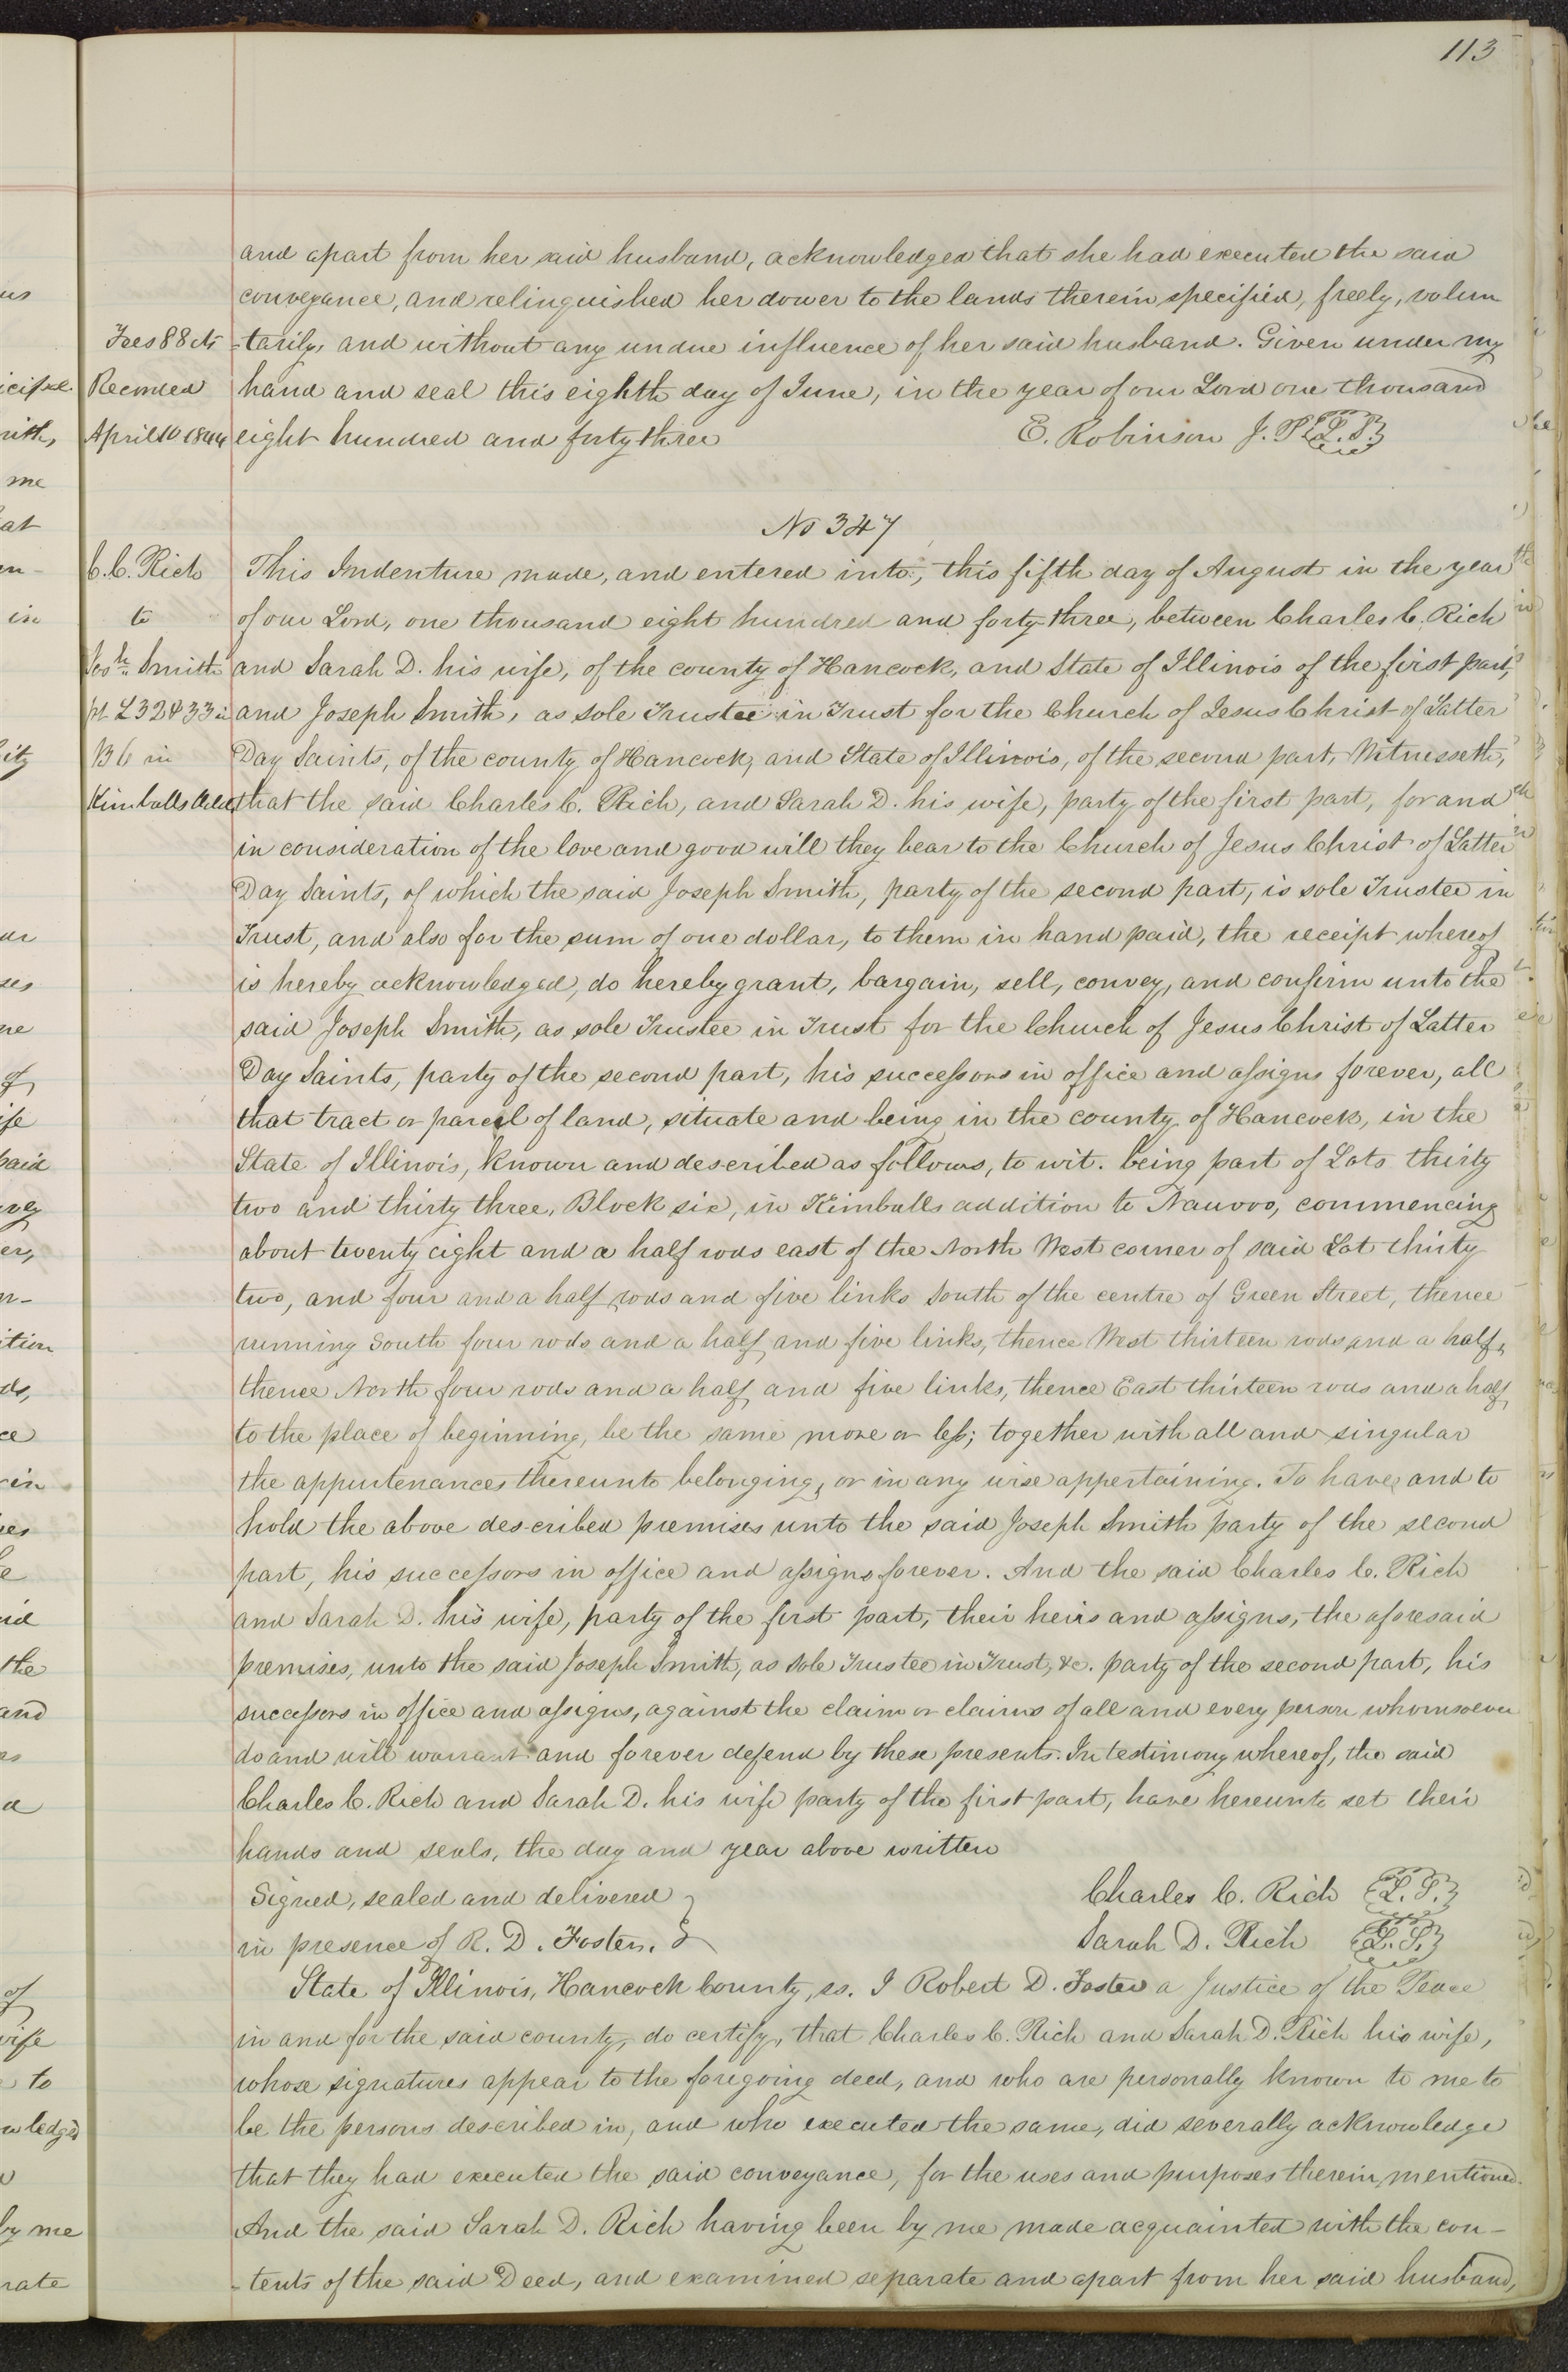 113
and apart from her said husband, acknowledged that she had executed the said
conveyance, and relinquished her dower to the lands therein specified, freely, volun
Fees 88 cts
-tarily, and without any undue influence of her said husband. Given under my
Recorded
hand and seal this eighth day of June, in the year of our Lord one thousand
April 10 1844
eight hundred and forty three
E. Robinson J. P. {L. S.}
No 347
C. C. Rich
This Indenture made, and entered into, this fifth day of August in the year
to
of our Lord, one thousand eight hundred and forty three, between Charles C. Rich
Josh Smith
and Sarah D. his wife, of the county of Hancock, and State of Illinois of the first part,
pt L 32 & 33 in
and Joseph Smith, as sole Trustee in Trust for the Church of Jesus Christ of Latter
B 6 in
Day Saints, of the county of Hancock, and State of Illinois, of the second part, Witnesseth,
Kimballs Add
that the said Charles C. Rich, and Sarah D. his wife, party of the first part, for and
in consideration of the love and good will they bear to the Church of Jesus Christ of Latter
Day Saints, of which the said Joseph Smith, party of the second part, is sole Trustee in
Trust, and also for the sum of one dollar, to them in hand paid, the receipt whereof
is hereby acknowledged, do hereby grant, bargain, sell, convey, and confirm unto the
said Joseph Smith, as sole Trustee in Trust for the Church of Jesus Christ of Latter
Day Saints, party of the second part, his successors in office and assigns forever, all
that tract or parcel of land, situate and being in the county of Hancock, in the
State of Illinois, known and described as follows, to wit. being part of Lots thirty
two and thirty three, Block six, in Kimballs addition to Nauvoo, commencing
about twenty eight and a half rods east of the North West corner of said Lot thirty
two, and four and a half rods and five links South of the centre of Green Street, thence
running South four rods and a half and five links, thence West thirteen rods and a half,
thence North four rods and a half and five links, thence East thirteen rods and a half,
to the place of beginning, be the same more or less; together with all and singular
the appurtenances thereunto belonging, or in any wise appertaining. To have and to
hold the above described premises unto the said Joseph Smith party of the second
part, his successors in office and assigns forever. And the said Charles C. Rich
and Sarah D. his wife, party of the first part, their heirs and assigns, the aforesaid
premises, unto the said Joseph Smith, as sole Trustee in Trust, &c. party of the second part, his
successors in office and assigns, against the claim or claims of all and every person whomsoever
do and will warrant and forever defend by these presents. In testimony whereof, the said
Charles C. Rich and Sarah D. his wife party of the first part, have hereunto set their
hands and seals, the day and year above written
Signed, sealed and delivered }
Charles C. Rich {L. S.}
in presence of R. D. Foster. }
Sarah D. Rich {L. S.}
State of Illinois, Hancock County, ss. I Robert D. Foster a Justice of the Peace
in and for the said county, do certify, that Charles C. Rich and Sarah D. Rich his wife,
whose signatures appear to the foregoing deed, and who are personally known to me to
be the persons described in, and who executed the same, did severally acknowledge
that they had executed the said conveyance, for the uses and purposes therein mentioned.
And the said Sarah D. Rich having been by me made acquainted with the con-
-tents of the said Deed, and examined separate and apart from her said husband,